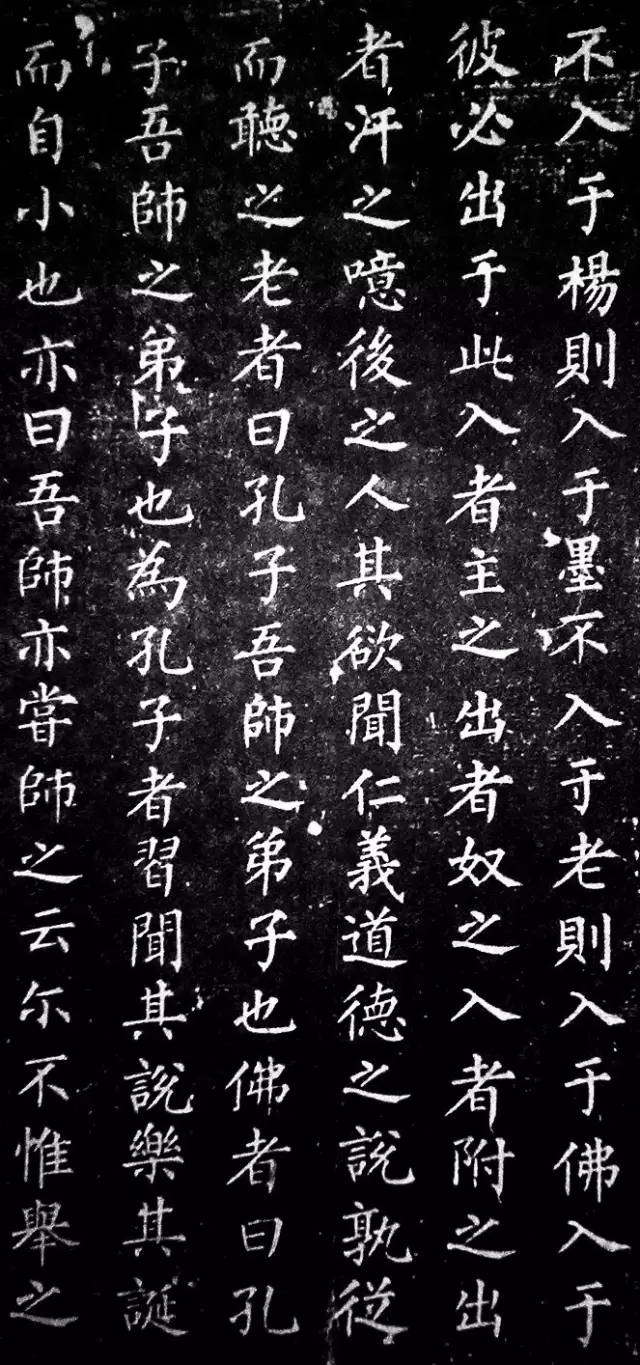 不入于楊則入于墨不入于老則入于佛入于
彼必出于此入者主之出者奴之入者附之出
者汙之噫後之人其欲聞仁義道德之說孰從
而聽之老者曰孔子吾師之弟子也佛者曰孔
子吾師之弟子也為孔子者習聞其說樂其誕
而自小也亦曰吾師亦嘗師之云尔不惟舉之